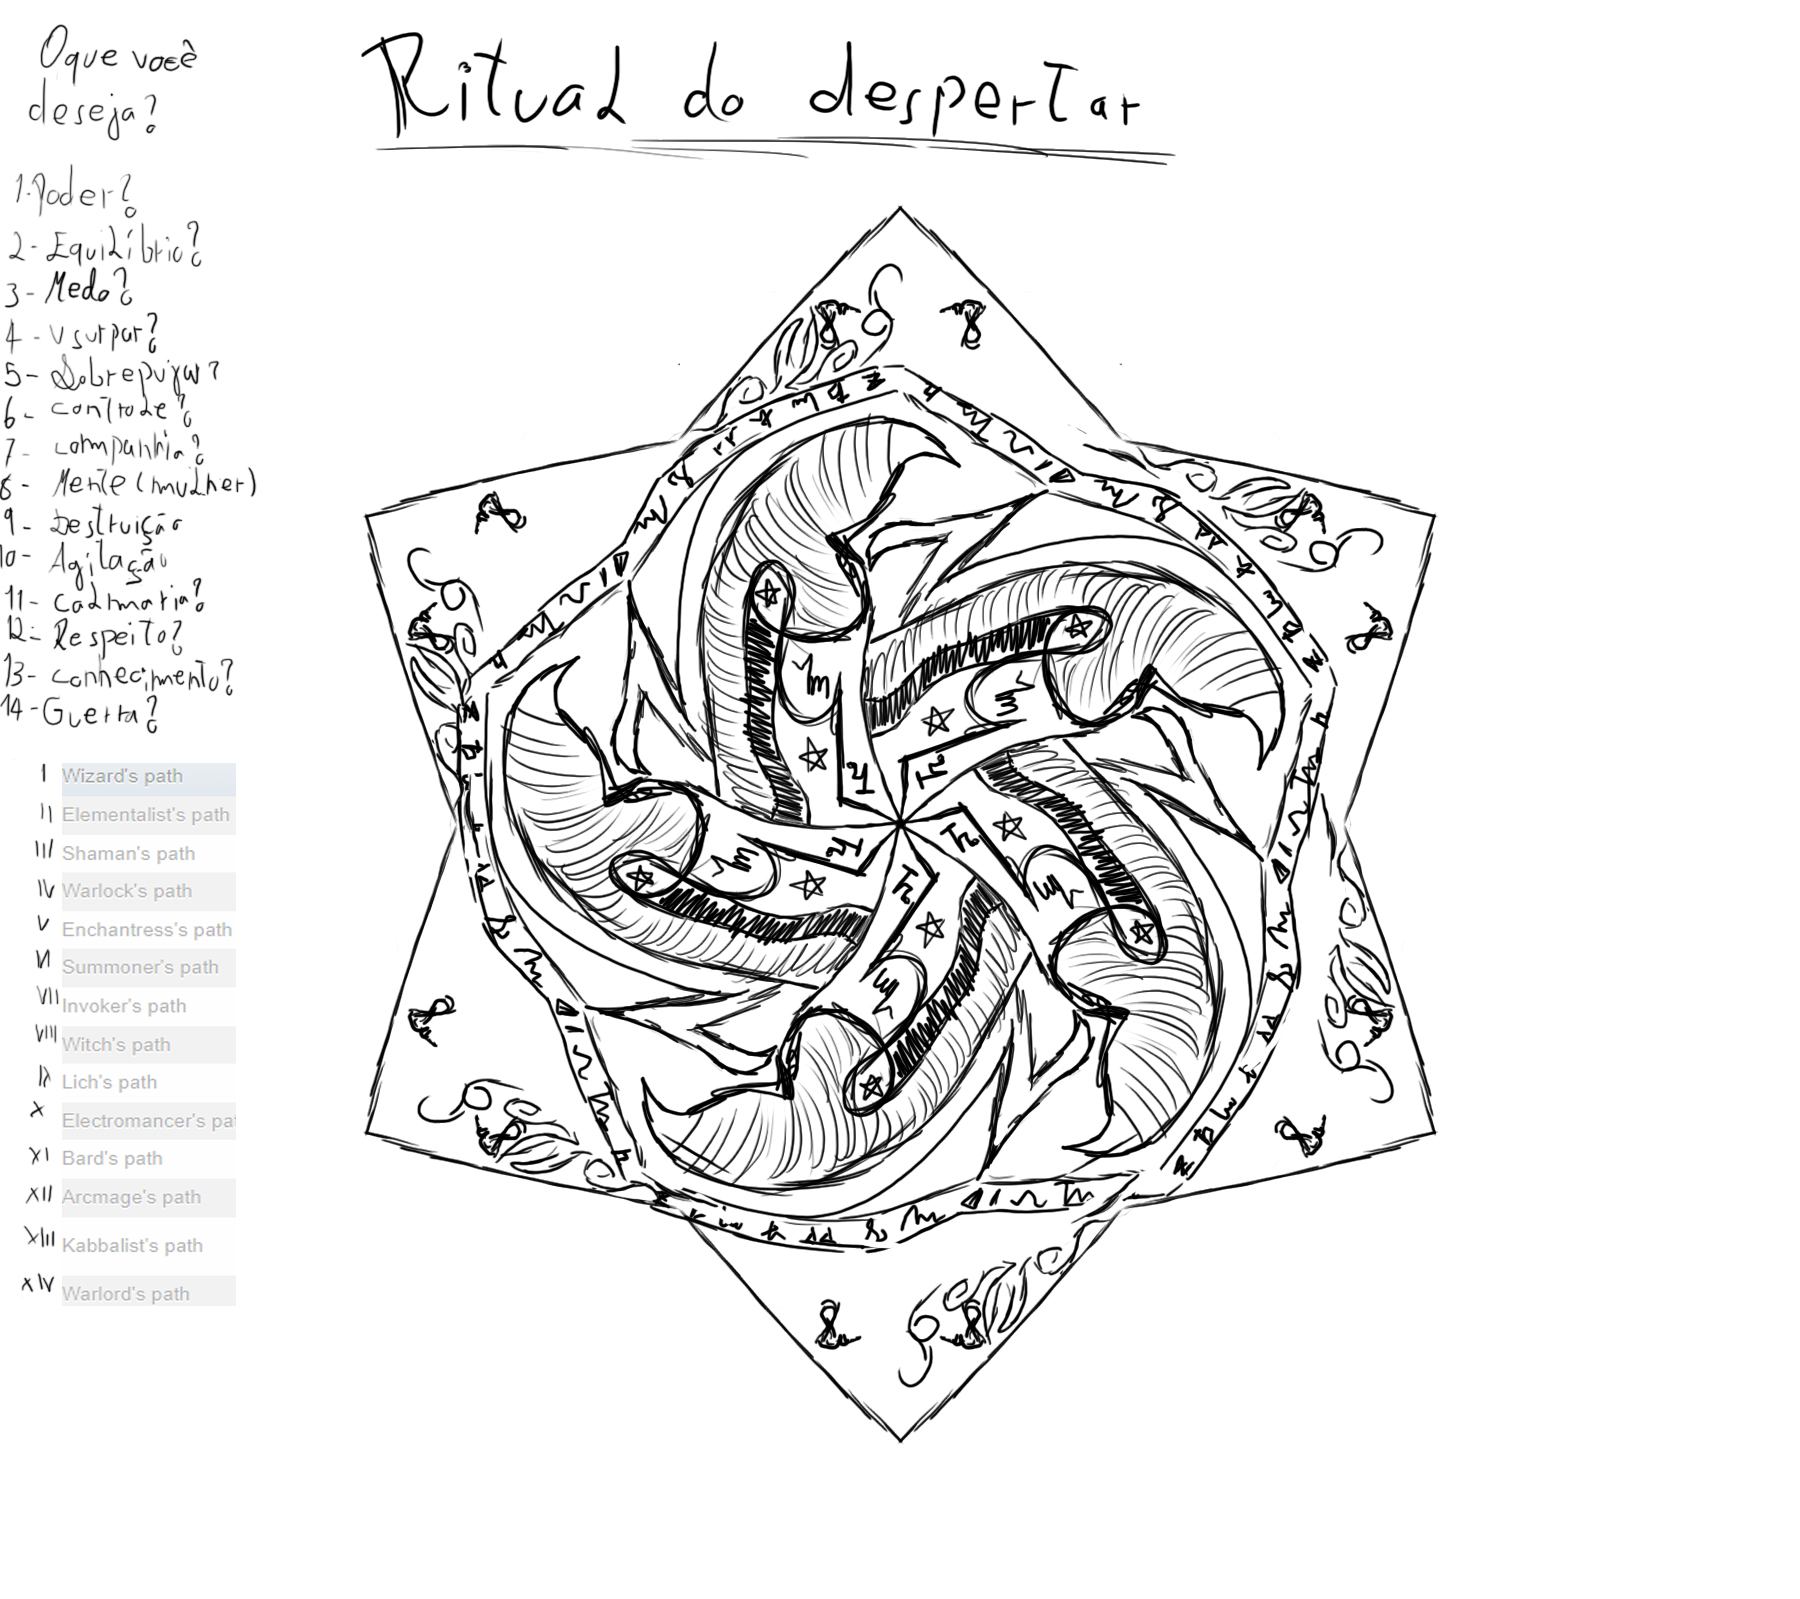 Oque você
deseja?
Ritual do despertar
1. Poder?
2 - Equilíbrio?
3 - Medo?
4 - Usurpar?
5 - Sobrepujar?
6 - controle?
7 - companhia?
8 - Mente (mulher)
9 - Destruição
10 - Agitação
11 - calmaria?
12 - Respeito?
13 - conhecimento?
14 - Guerra?
I Wizard's path
II Elementalist's path
III Shaman's path
IV Warlock's path
V Enchantress's path
VI Summoner's path
VII Invoker's path
VIII Witch's path
IX Lich's path
X Electromancer's pat
XI Bard's path
XII Arcmage's path
XIII Kabbalist's path
XIV Warlord's path